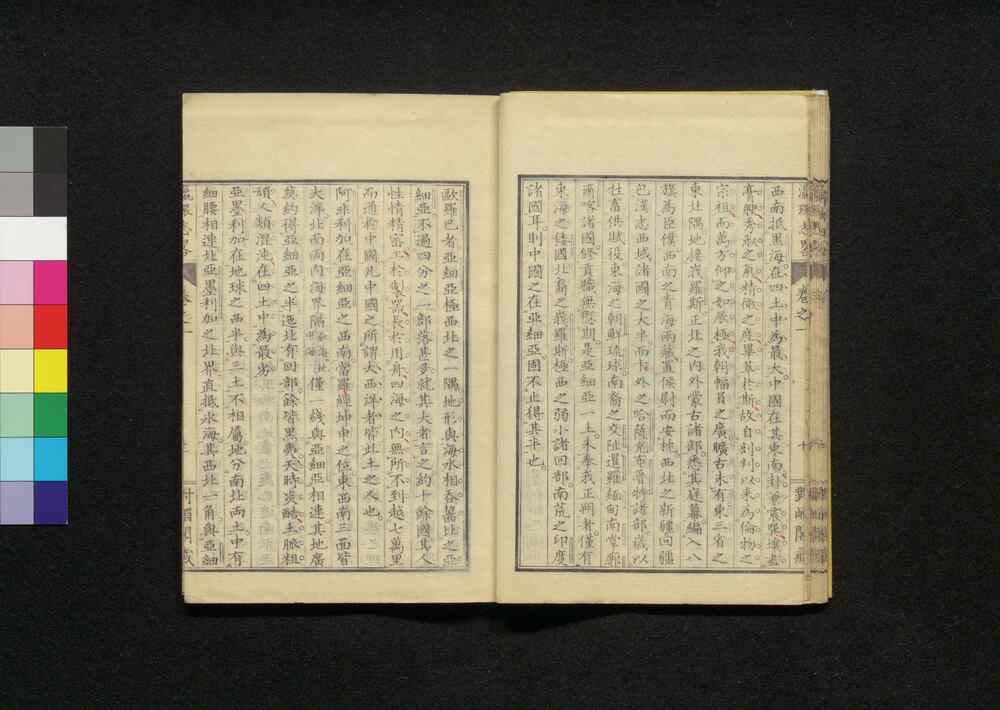 瀛環志略 卷之一 十 對嵋閣藏
西南抵黑海在四土中為最大中國在其東南卦兼震巽壤盡
膏腴秀淑之氣精微之產畢萃於斯故自剖判以來為倫物之
宗祖而萬方仰之如辰極我朝幅員之廣曠古未有東三省之
東北隅地接峩羅斯正北之內外蒙古諸部悉其庭幕編入八
旗為臣僕西南之青海兩藏置侯尉而安枕西北之新疆回疆
已漢志西域諸國之大半而卡外之哈薩克布魯特諸部歲以
牲畜供賦役東海之朝鮮琉球南裔之交阯暹羅緬甸南掌廓
爾喀諸國修貢職無愆期是亞細亞一土未奉我正朔者僅有
東海之倭國北裔之峩羅斯極西之弱小諸回部南荒之印度
諸國耳則中國之在亞細亞固不止得其半也
歐羅巴者亞細亞極西北之一隅地形與海水相吞噬比之亞
細亞不過四分之一部落甚多就其大者言之約十餘國其人
性情精密工於製器長於用舟四海之內無所不到越七萬里
而通於中國凡中國之所謂大西洋者皆此土之人也
阿非利加在亞細亞之西南當羅經坤申之位東西南三面皆
大洋北面兩內海界隔僅一線與亞細亞相連其地廣
莫約得亞細亞之半迤北有回部餘皆黑夷天時炎酷土脈粗
頑人類渾沌在四土中為最劣
亞墨利加在地球之西半與三土不相屬地分南北兩土中有
細腰相連北亞墨利加之北界直抵氷海其西北一角與亞細
瀛環志略 卷之一 對嵋閣藏